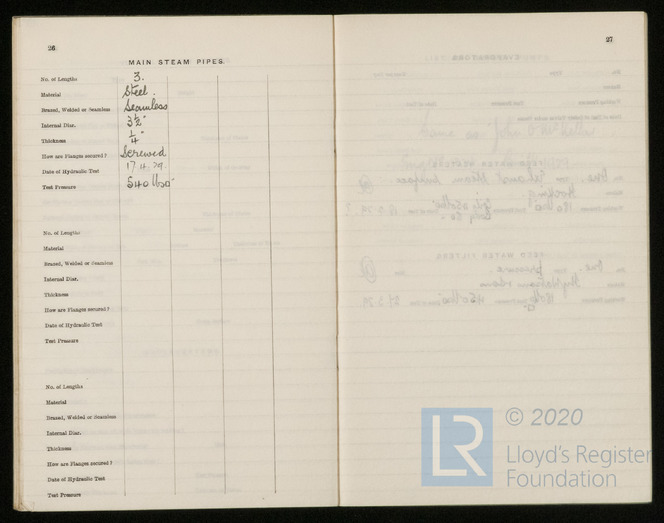 26
MAIN STEAM PIPES.
No. of Lengths 3.
Material Steel.
Brazed, Welded or Seamless Seamless
Internal Diar. 3½"
Thickness ¼"
How are Flanges secured? Screwed
Date of Hydraulic Test 17.4.29.
Test Pressure 540 lbs
No. of Lengths
Material
Brazed, Welded or Seamless
Internal Diar.
Thickness
How are Flanges secured?
Date of Hydraulic Test
Test Pressure
No. of Lengths
Material
Brazed, Welded or Seamless
Internal Diar.
Thickness
How are Flanges secured?
Date of Hydraulic Test
Test Pressure
27
LR
© 2020
Lloyd's Register
Foundation